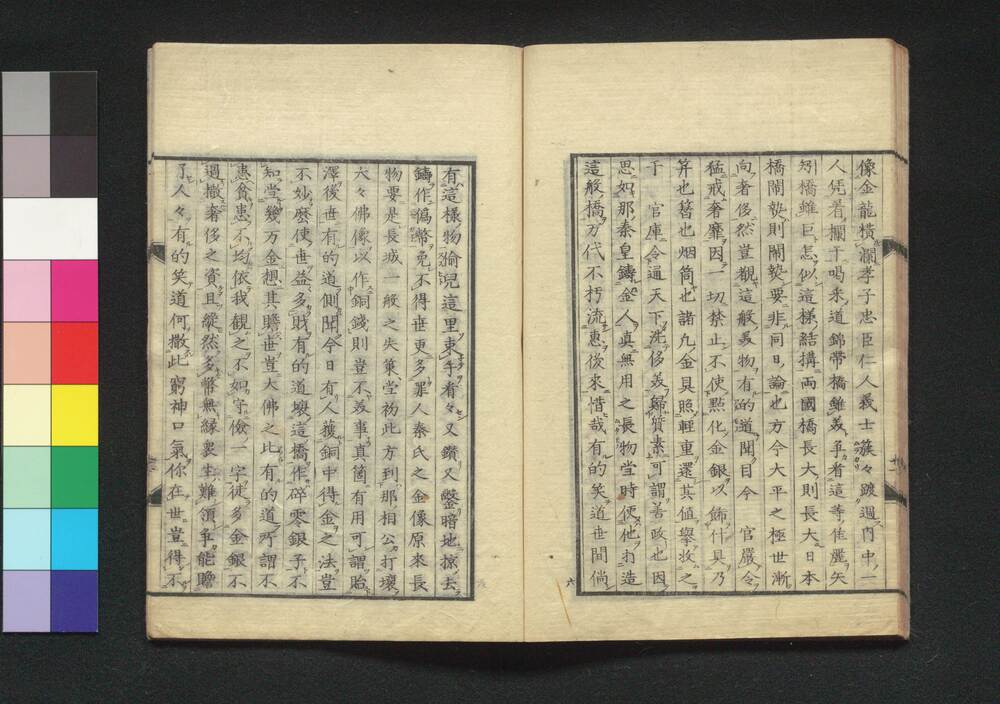 像金龍橫瀾孝子忠臣仁人義士簇々跛週門中一
人凭着欄干喝采道錦帶橋雖美爭看這等佳麗矣
矧橋雖巨怎似這樣結搆両國橋長大則長大日本
橋閙熱則閙熱要非同日論也方今大平之極世漸
向奢侈然豈覩這般美物有的道聞目今　官嚴令
猛戒奢靡因一切禁止不使㸃化金銀以餙什具乃
笄也簪也烟筒也諸凢金具照輕重還其值擧收之
于　官庫令逼天下洗侈美歸質素可謂善政也因
思如那秦皇鑄金人真無用之長物堂時便他打造
這般橋万代不朽流惠後來惜哉有的笑道世間倘
有這樣物偷児這里束手看々又鑽又鑿暗地掠去
鑄作偽幣免不得世更多罪人秦氏之金像原來長
物要是長城一般之失策堂初此方到那相公打壞
大々佛像以作銅錢則豈不美事真箇有用可謂貽
澤後世有的道側聞今日有人獲銅中得金之法豈
不妙麼使世益多財有的道壞這橋作碎零銀子不
知堂幾万金想其贍世豈大佛之比有的道所謂不
患貧患不均依我観之不如守儉一字徒多金銀不
過撒奢侈之資且縱然多幣無縁衆生難領爭能贍
了人々有的笑道何撒此窮神口氣你在世豈得不
六